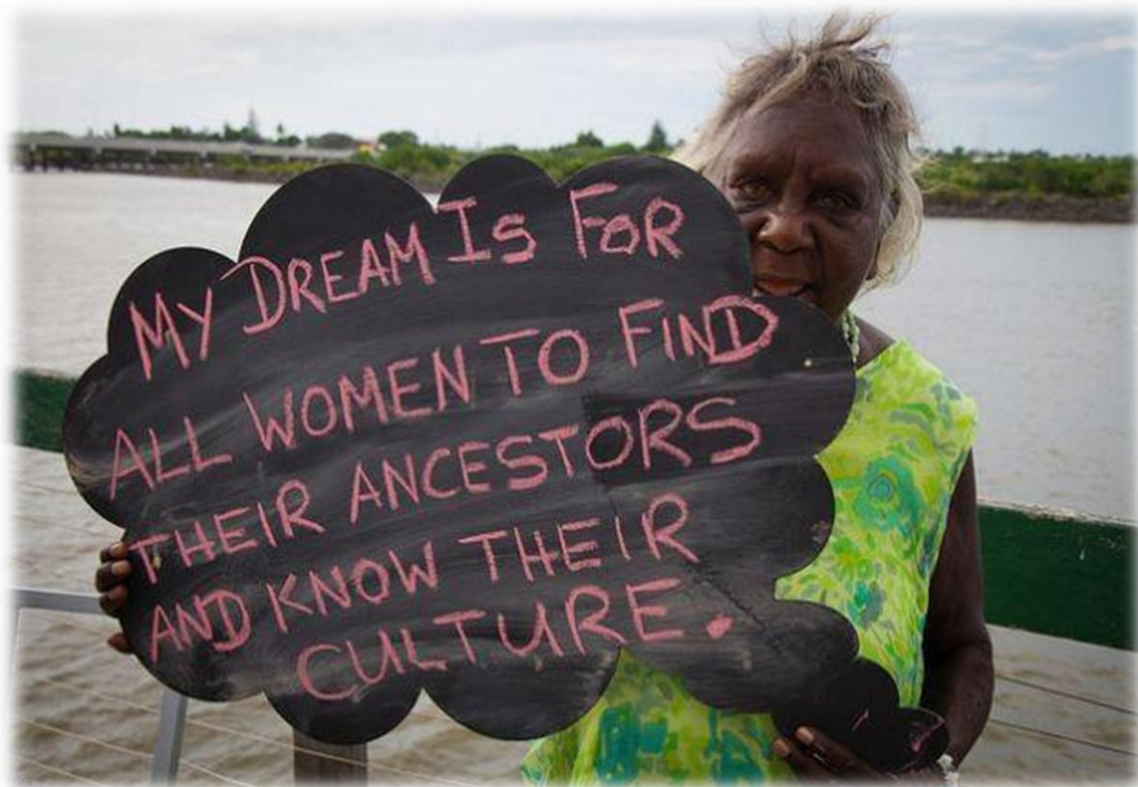 MY DREAM IS FOR
ALL WOMEN TO FIND
THEIR ANCESTORS
AND KNOW THEIR
CULTURE.